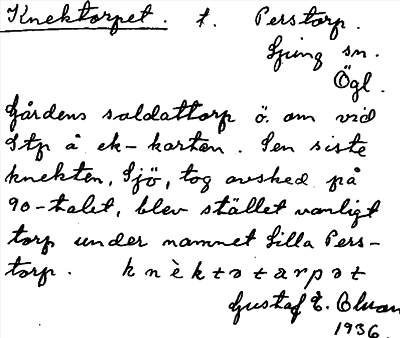 Knektorpet. t. Perstorp.
Ljung sn.
Ögl.
Gårdens soldattorp ö. om vid
Stp å ek-kartan. Sen siste
knekten, Sjö, tog avsked på
90-talet, blev stället vanligt
torp under namnet Lilla Pers-
torp. knèktətarpət
Gustaf E. Olman
1936.